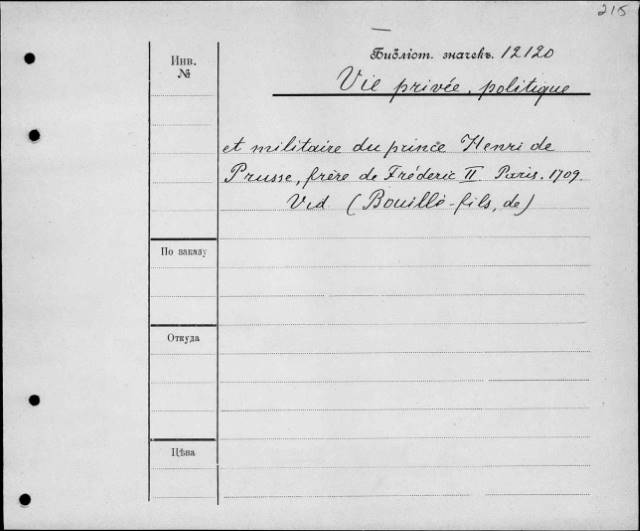 215
Библіот. значекъ. 12120
Vie privée, politique
Инв.
№
et militaire du prince Henri de
Prusse, frère de Fréderic II Paris. 1709.
Vid (Bouillé-fils, de)
По заказу
Откуда
Цѣна